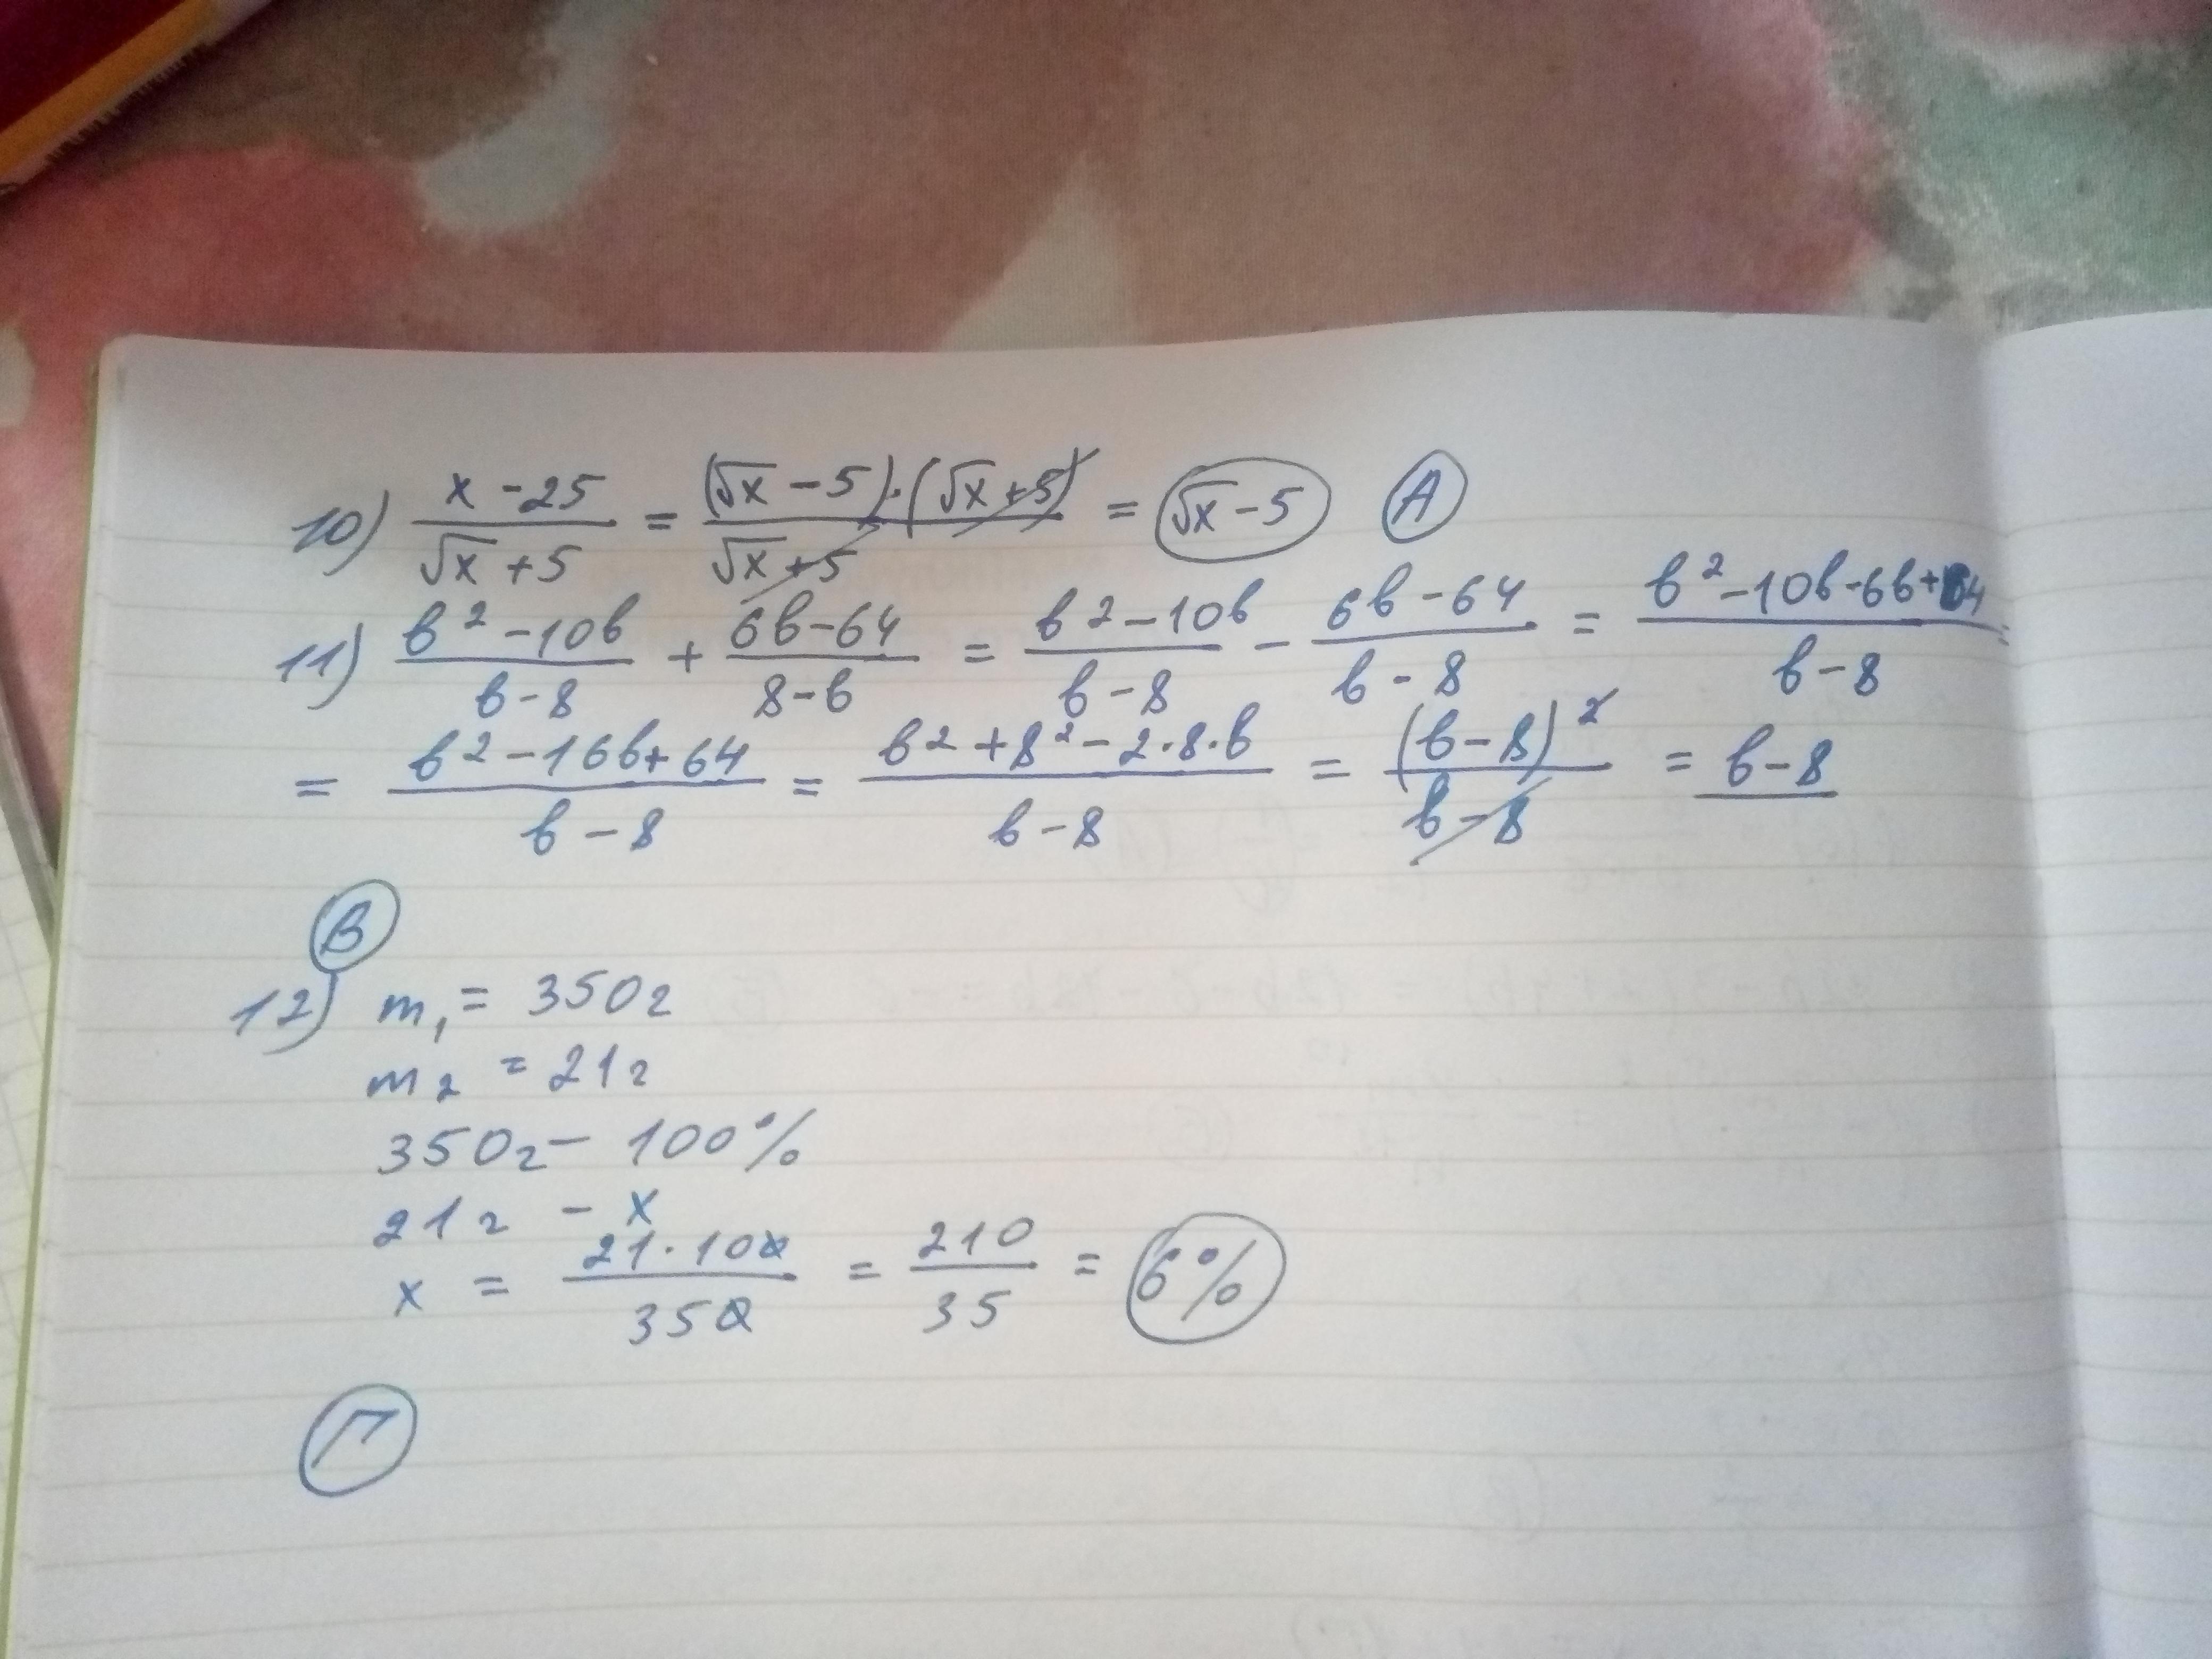 10) (x - 25)/(√x + 5) = ((√x - 5)·(√x + 5))/(√x + 5) = √x - 5 А
11) (b² - 10b)/(b - 8) + (6b - 64)/(8 - b) = (b² - 10b)/(b - 8) - (6b - 64)/(b - 8) = (b² - 10b - 6b + 64)/(b - 8) =
= (b² - 16b + 64)/(b - 8) = (b² + 8² - 2·8·b)/(b - 8) = (b - 8)²/(b - 8) = b - 8
В
12) m₁ = 350г
m₂ = 21г
350г - 100%
21г - x
x = (21·100)/350 = 210/35 = 6%
Г